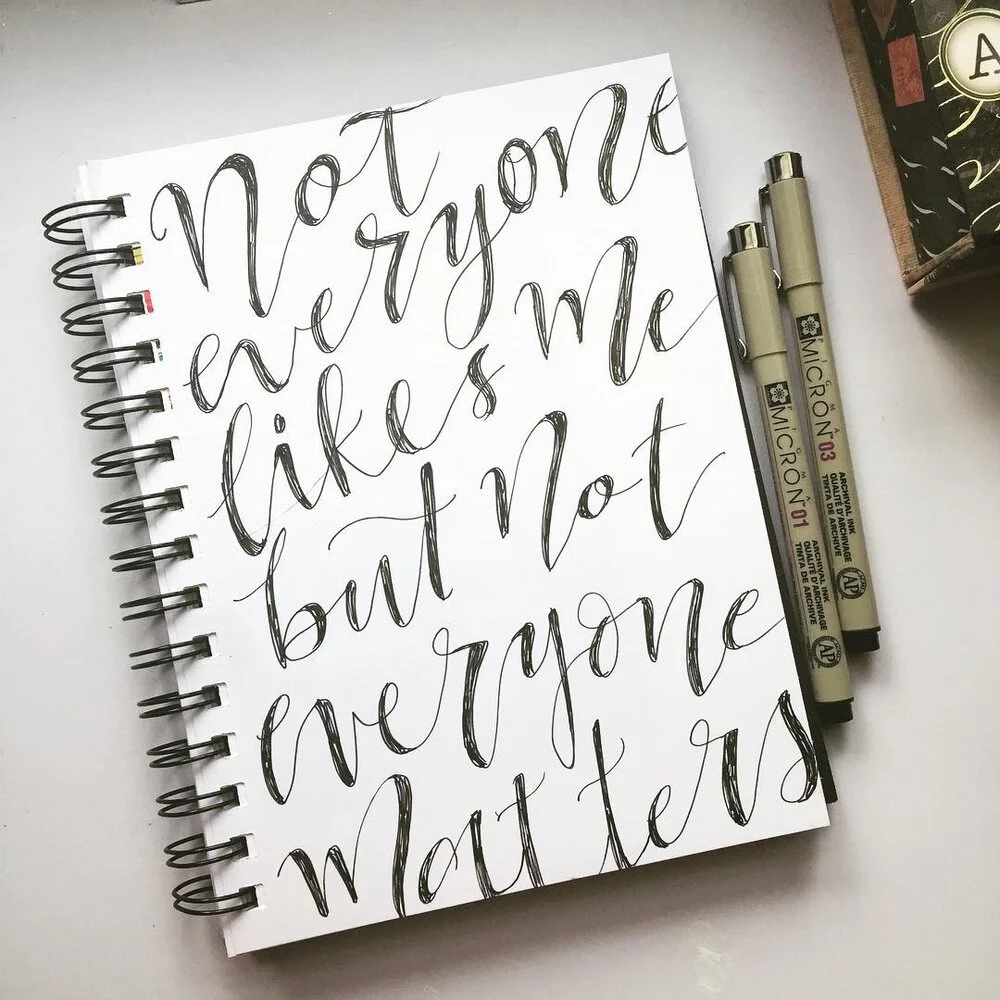 Not
everyone
likes me
but not
everyone
matters
SIGMA
MICRON 01
ARCHIVAL INK
QUALITÉ D'ARCHIVAGE
TINTA DE ARCHIVE
AP
SIGMA
MICRON 03
ARCHIVAL INK
QUALITÉ D'ARCHIVAGE
TINTA DE ARCHIVE
AP
A